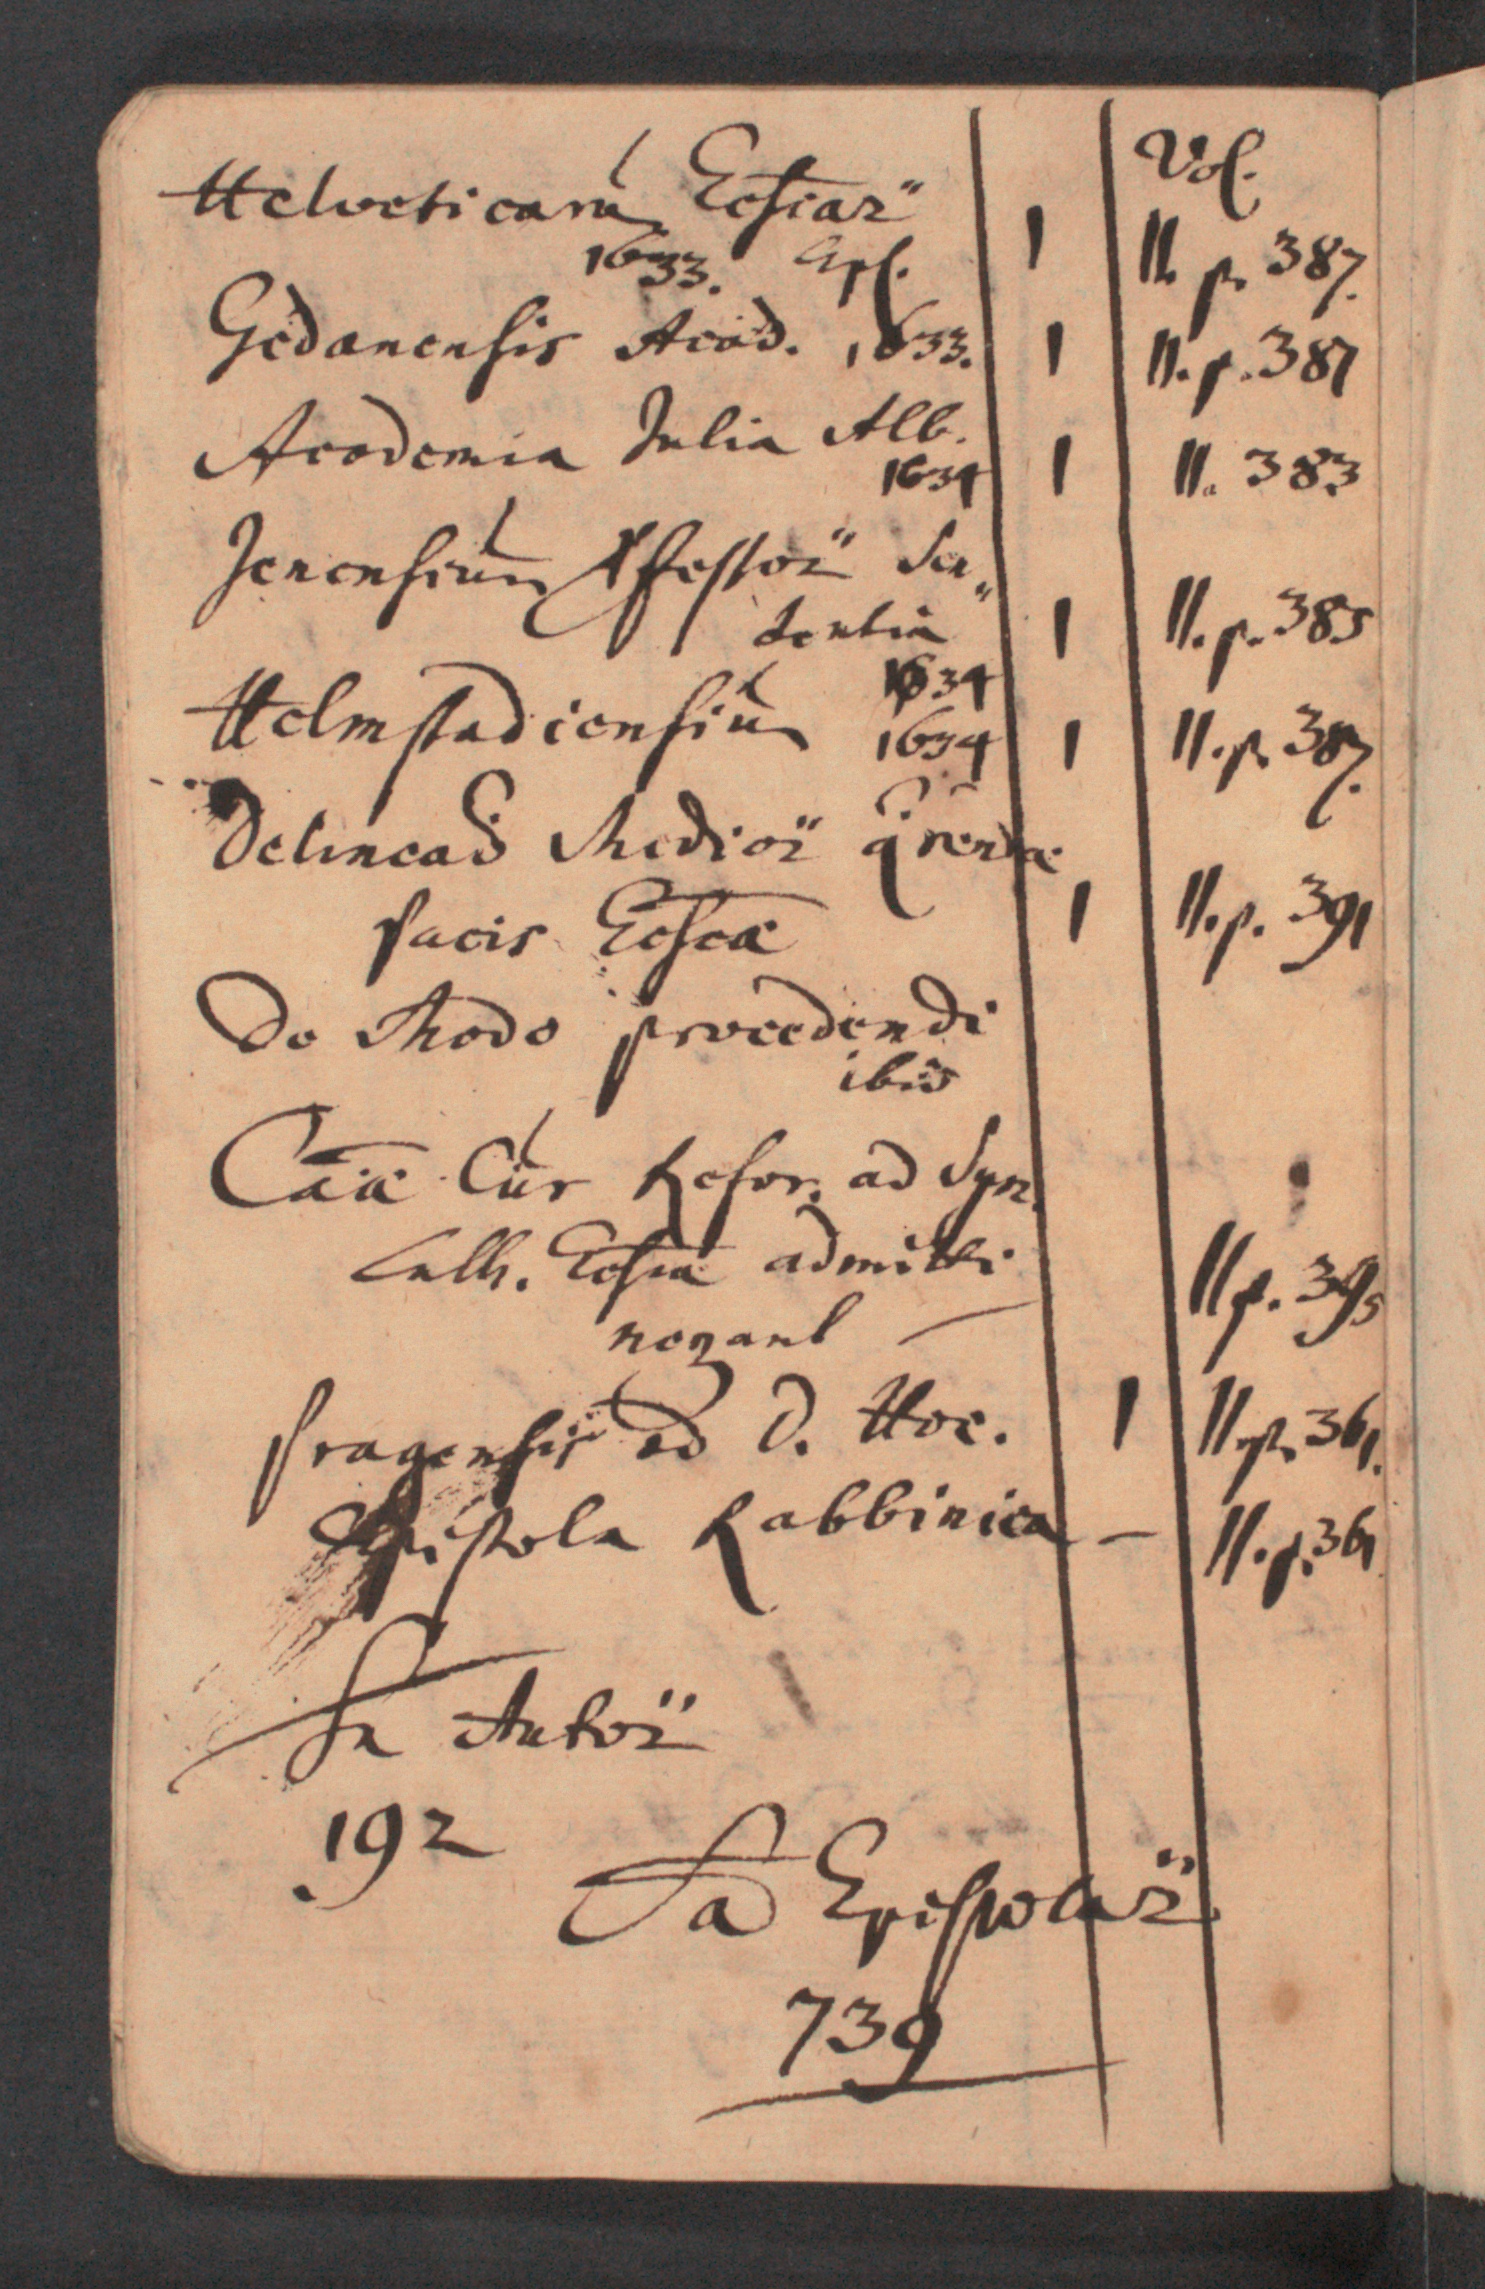 Vol.
Helveticarũ Ecĩar̈
1633. Epl. 1 II. p. 387.
Gedanensis Acad. 1633. 1 II. p. 387
Academia Julia Alb.
1634 1 II. 383
Jenensium Pfessor̈ Sen„
tentia 1 II. p. 385
1634
Helmstadiensium 1634 1 II. p. 387.
Delineaõ Medior̈ q̃rendæ
pacis Eccæ 1 II. p. 391
De Modo procedendi
ibid
Caãæ Cur Refor. ad Syn.
Luth. Ecĩa admitti
negant — II p. 395
Pragensis ad D. Hoe. 1 II. p. 361.
Epistola Rabbinica — II. p. 361
Sa Autor̈
192
Sa Epistolar̈.
739